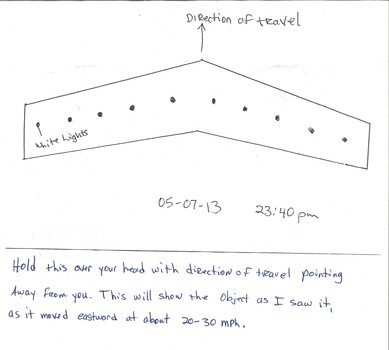 Direction of travel
White Lights
05-07-13 23:40 pm
Hold this over your head with direction of travel pointing
Away from you. This will show the Object as I saw it,
as it moved eastword at about 20-30 mph.